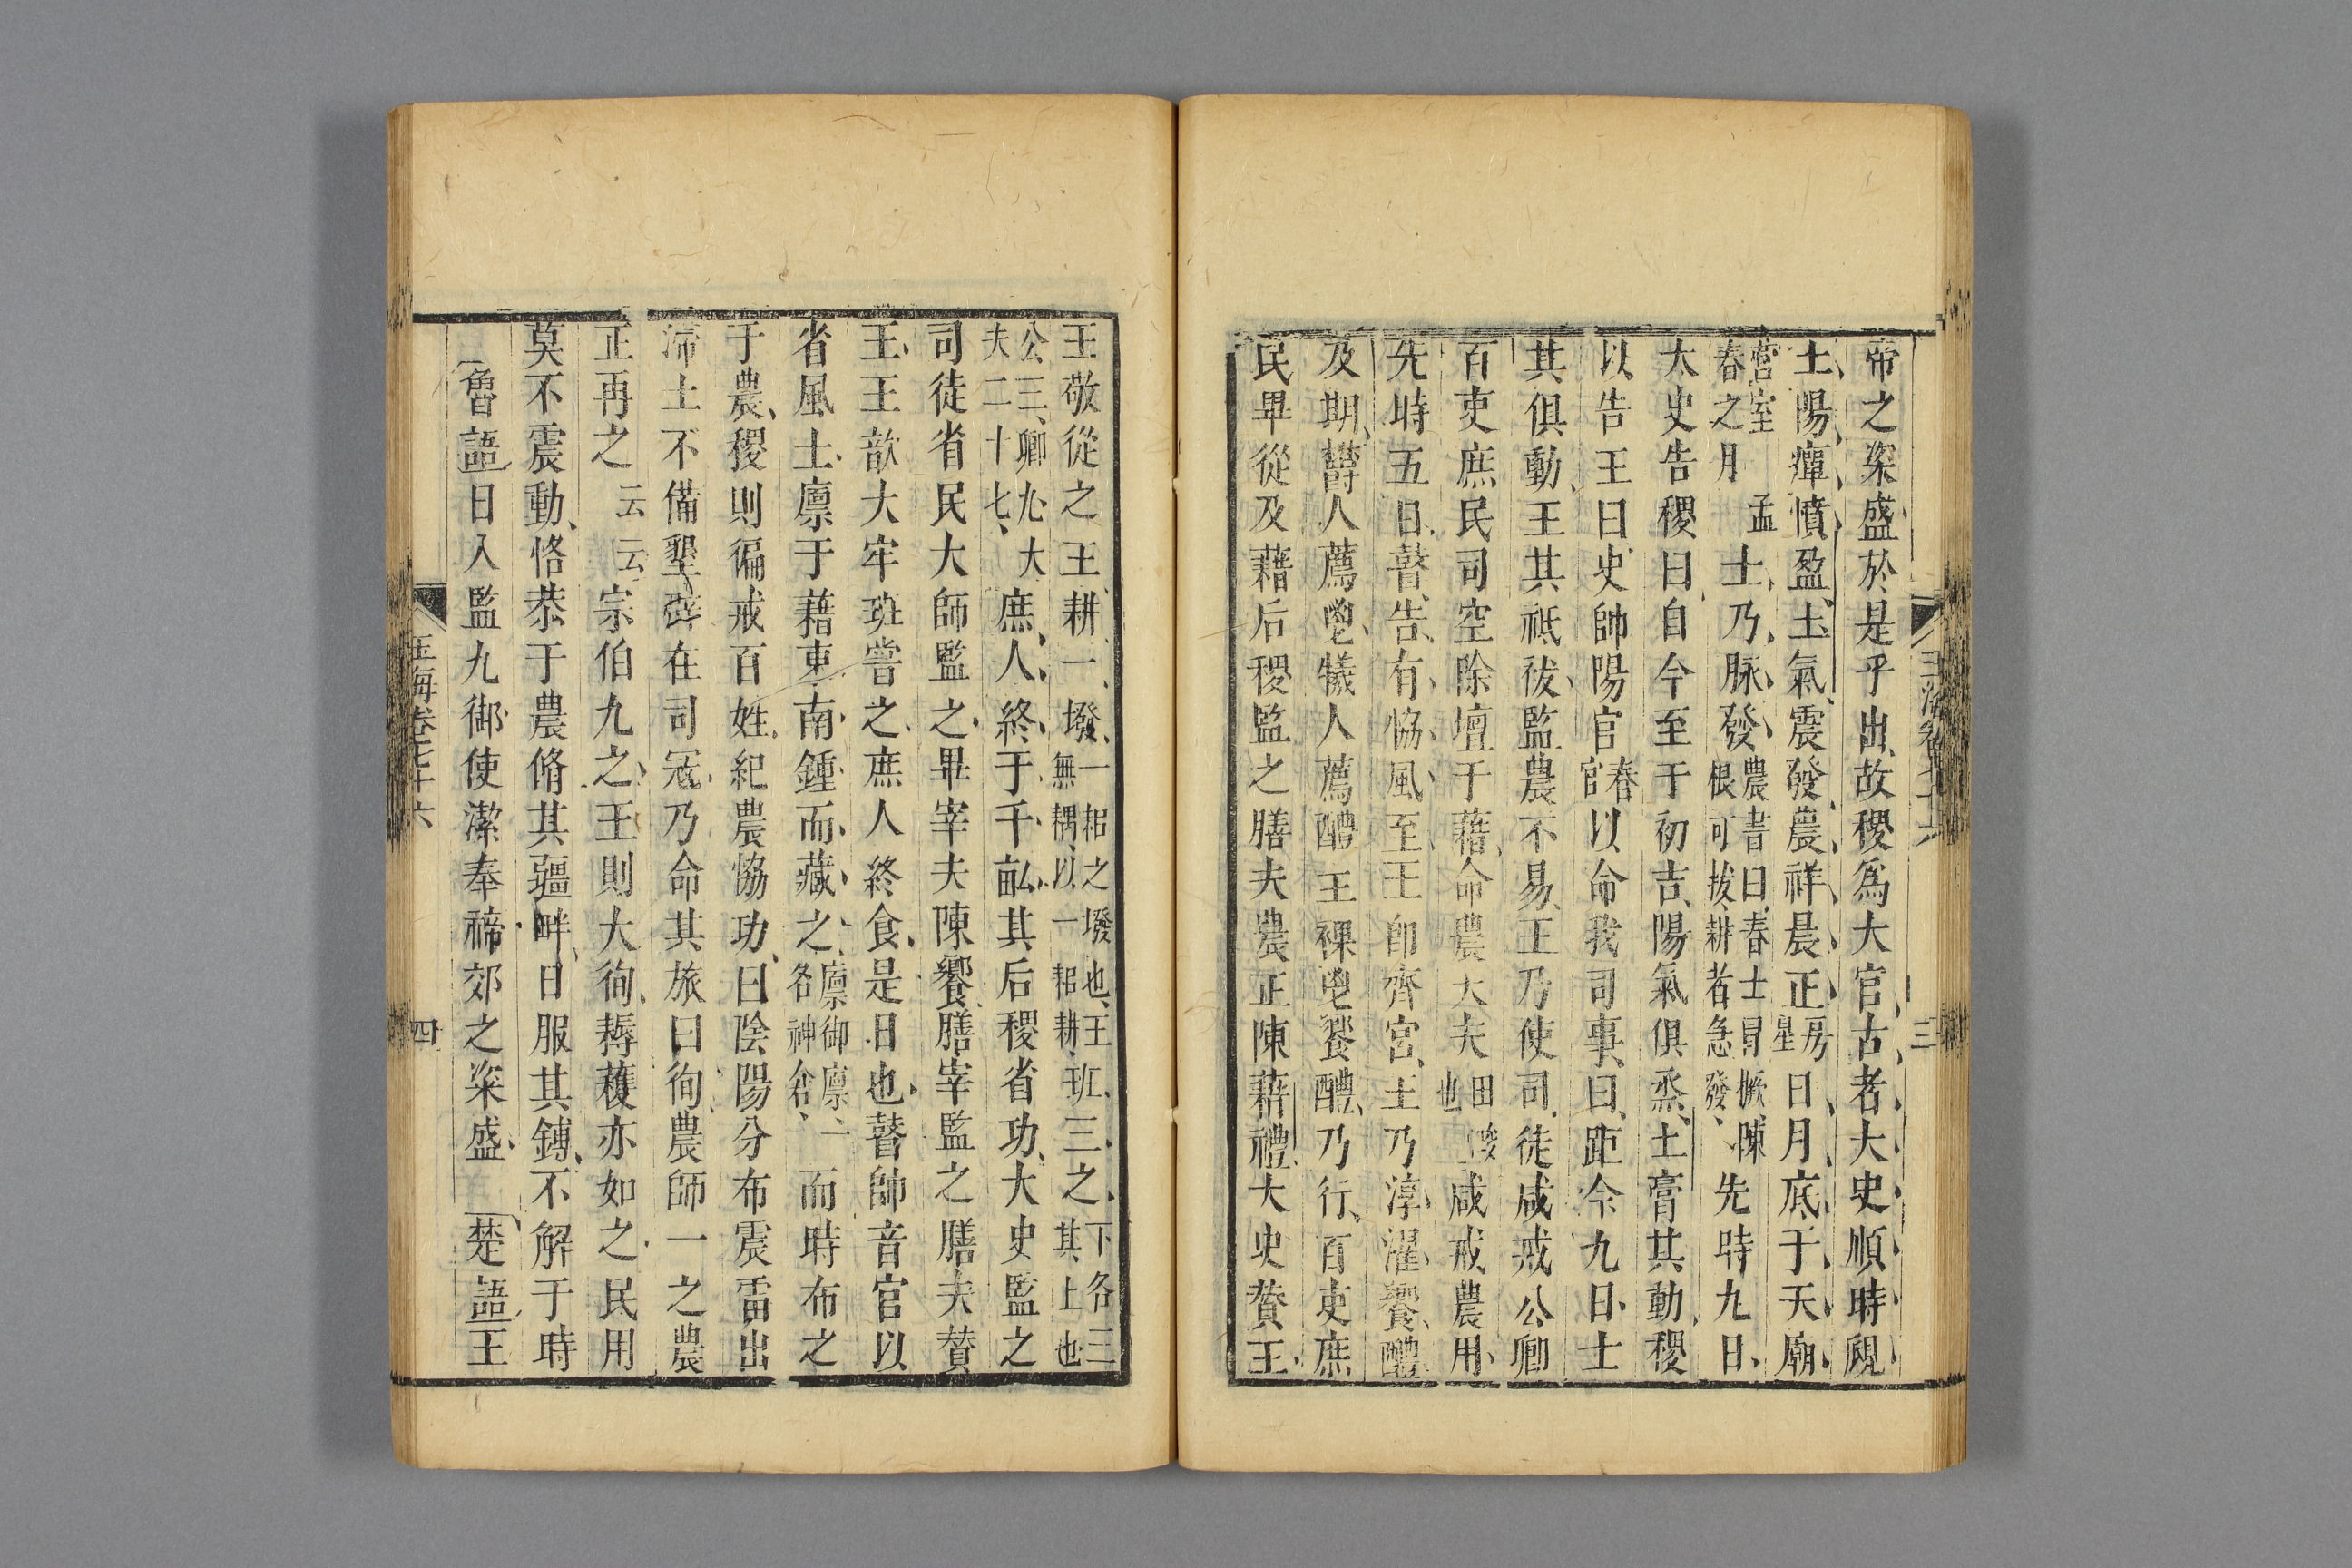 帝之粢盛於是乎出故稷爲大官古者大史順時覛
土陽癉憤盈土氣震發農祥晨正房星日月底于天廟
營室孟春之月土乃脉發農書曰春土冒橛陳根可拔耕者急發先時九日
太史告稷曰自今至于初吉陽氣俱烝土膏其動稷
以告王曰史帥陽官春官以命我司事曰距今九日土
其俱動王其祗祓監農不易王乃使司徒咸戒公卿
百吏庶民司空除壇于藉命農大夫田畯也咸戒農用
先時五日瞽告有協風至王卽齊宮王乃淳濯饗醴
及期鬱人薦鬯犧人薦醴王祼鬯饗醴乃行百吏庶
民畢從及藉后稷監之膳夫農正陳藉禮大史贊王
玉海卷七十六
三
王敬從之王耕一墢一耜之墢也王無耦以一耜耕班三之下各三其上也
公三卿九大夫二十七庶人終于千畝其后稷省功大史監之
司徒省民大師監之畢宰夫陳饗膳宰監之膳夫贊
王王歆大牢班嘗之庶人終食是日也瞽帥音官以
省風土廩于藉東南鍾而藏之廩御廩一名神倉而時布之
于農稷則徧戒百姓紀農協功曰陰陽分布震雷出
滯土不備墾辟在司寇乃命其旅曰徇農師一之農
正再之云云宗伯九之王則大徇耨穫亦如之民用
莫不震動恪恭于農脩其疆畔日服其鎛不解于時
魯語日入監九御使潔奉禘郊之粢盛 楚語王
玉海卷七十六
四